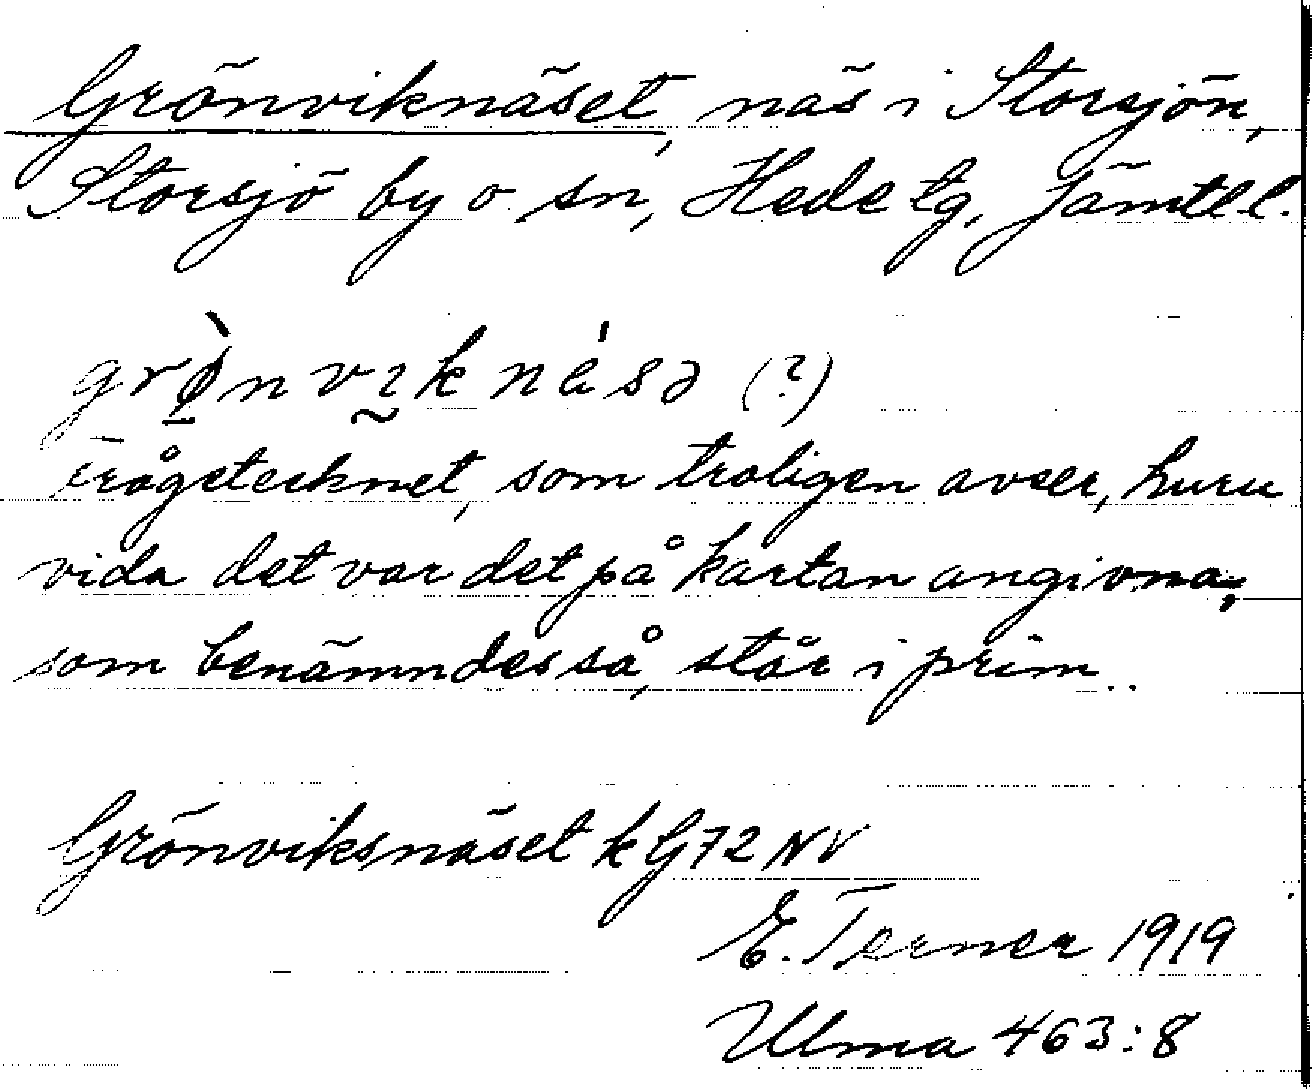 Grönviknäset, näs i Storsjön,
Storsjö by o sn, Hede tg, Jämtl l.
grø̀nvɿknésə (?)
Frågetecknet, som troligen avser, huru
vida det var det på kartan angivna,
som benämndes så, står i prim..
Grönviksnäset k G72 NV
E. Terner 1919
Ulma 463:8